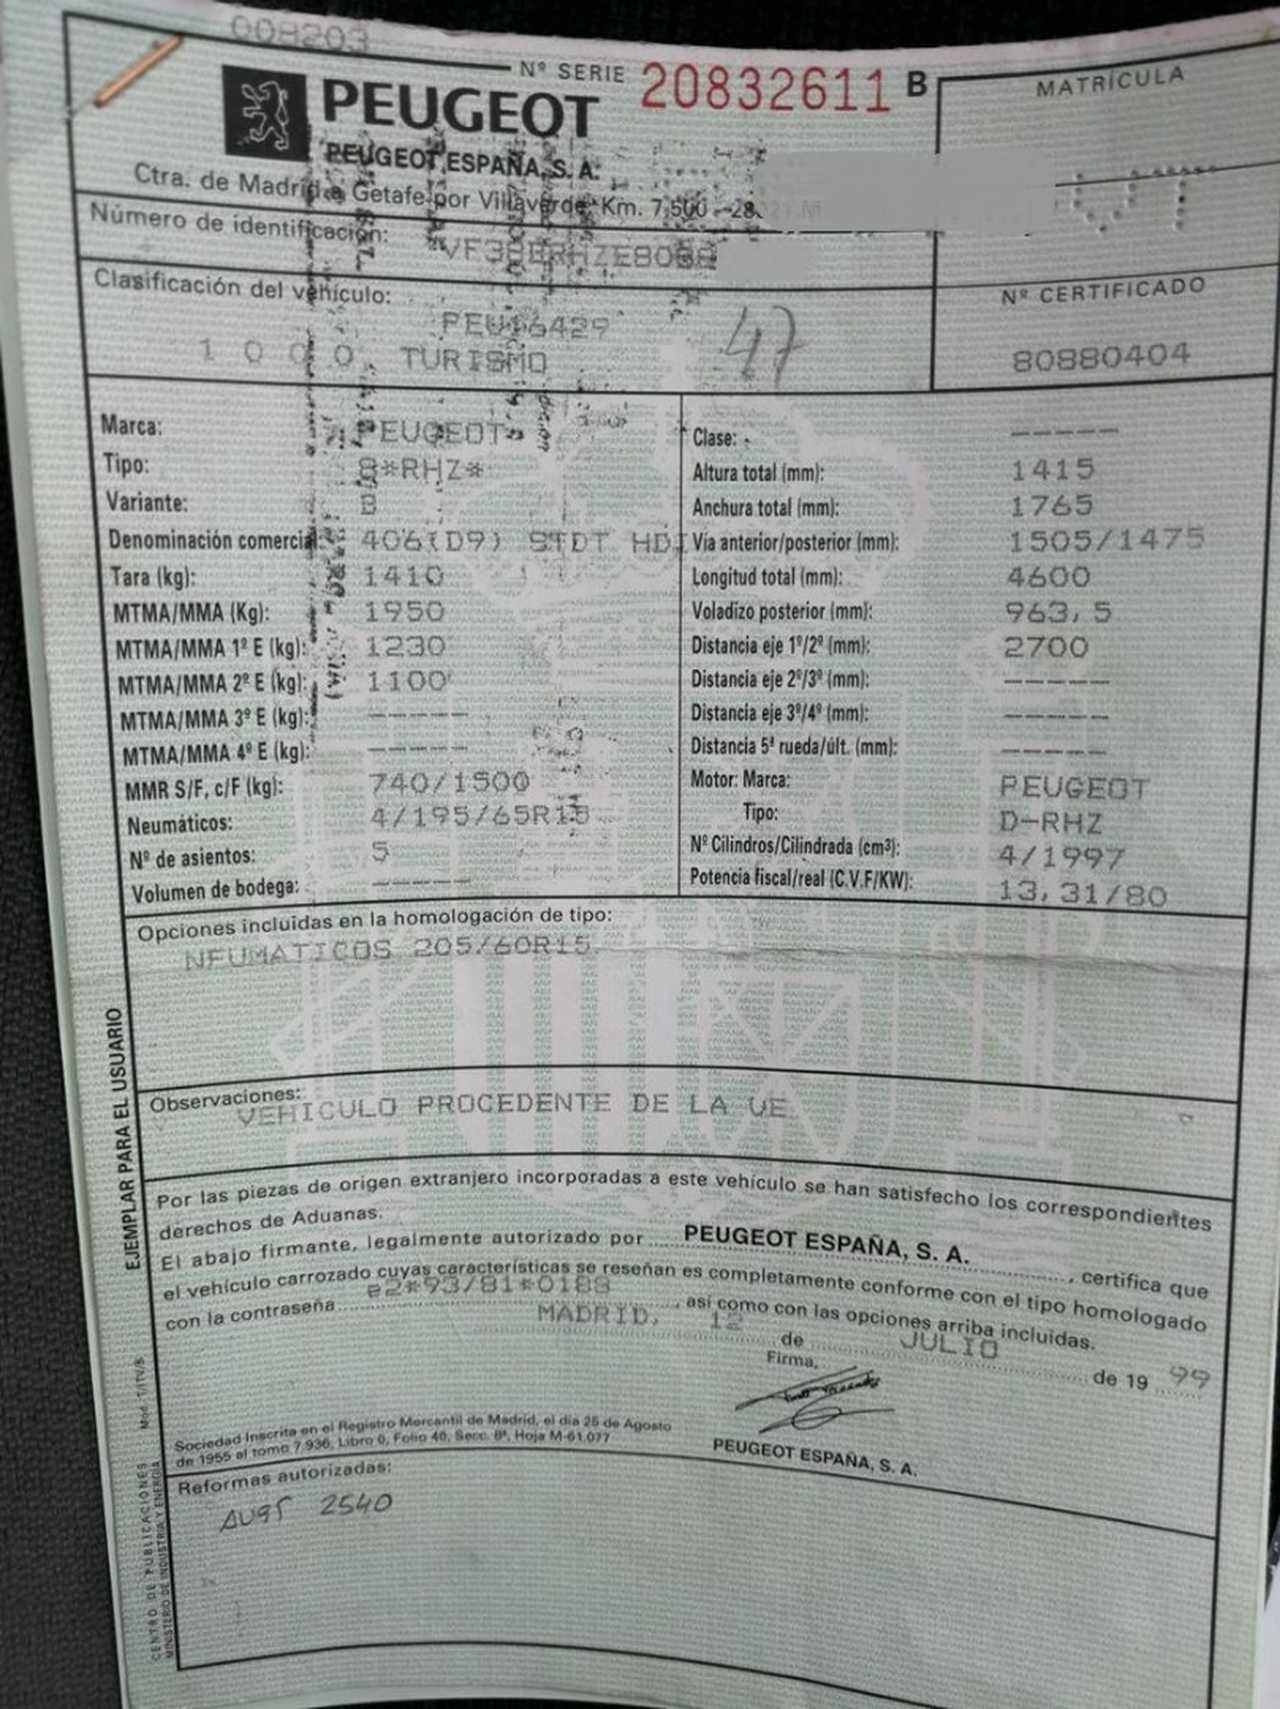 008203
Nº SERIE 20832611 B
MATRÍCULA
PEUGEOT
PEUGEOT ESPAÑA, S. A.
Ctra. de Madrid a Getafe por Villaverde Km. 7,500 - 28.
Número de identificación:
Clasificación del vehículo:
PEU16429
1000 TURISMO
47
Nº CERTIFICADO
80880404
Marca: PEUGEOT
Tipo: 8*RHZ*
Variante: B
Denominación comercial: 406(D9) STDT HDI
Tara (kg): 1410
MTMA/MMA (Kg): 1950
MTMA/MMA 1º E (kg): 1230
MTMA/MMA 2º E (kg): 1100
MTMA/MMA 3º E (kg): -----
MTMA/MMA 4º E (kg): -----
MMR S/F, c/F (kg): 740/1500
Neumáticos: 4/195/65R15
Nº de asientos: 5
Volumen de bodega: -----
Clase: -----
Altura total (mm): 1415
Anchura total (mm): 1765
Vía anterior/posterior (mm): 1505/1475
Longitud total (mm): 4600
Voladizo posterior (mm): 963,5
Distancia eje 1º/2º (mm): 2700
Distancia eje 2º/3º (mm): -----
Distancia eje 3º/4º (mm): -----
Distancia 5ª rueda/últ. (mm): -----
Motor: Marca: PEUGEOT
Tipo: D-RHZ
Nº Cilindros/Cilindrada (cm³): 4/1997
Potencia fiscal/real (C.V.F/KW): 13,31/80
Opciones incluidas en la homologación de tipo:
NEUMATICOS 205/60R15
Observaciones:
VEHICULO PROCEDENTE DE LA UE
Por las piezas de origen extranjero incorporadas a este vehículo se han satisfecho los correspondientes
derechos de Aduanas.
El abajo firmante, legalmente autorizado por PEUGEOT ESPAÑA, S. A. , certifica que
el vehículo carrozado cuyas características se reseñan es completamente conforme con el tipo homologado
con la contraseña e2*93/81*0188 , así como con las opciones arriba incluidas.
MADRID, 12 de JULIO de 19 99
Firma,
PEUGEOT ESPAÑA, S. A.
Sociedad Inscrita en el Registro Mercantil de Madrid, el día 25 de Agosto
de 1955 al tomo 7.936, Libro 0, Folio 40, Secc. 8ª, Hoja M-61.077
Reformas autorizadas:
2540
EJEMPLAR PARA EL USUARIO
Mod. T/ITV/B
CENTRO DE PUBLICACIONES
MINISTERIO DE INDUSTRIA Y ENERGIA